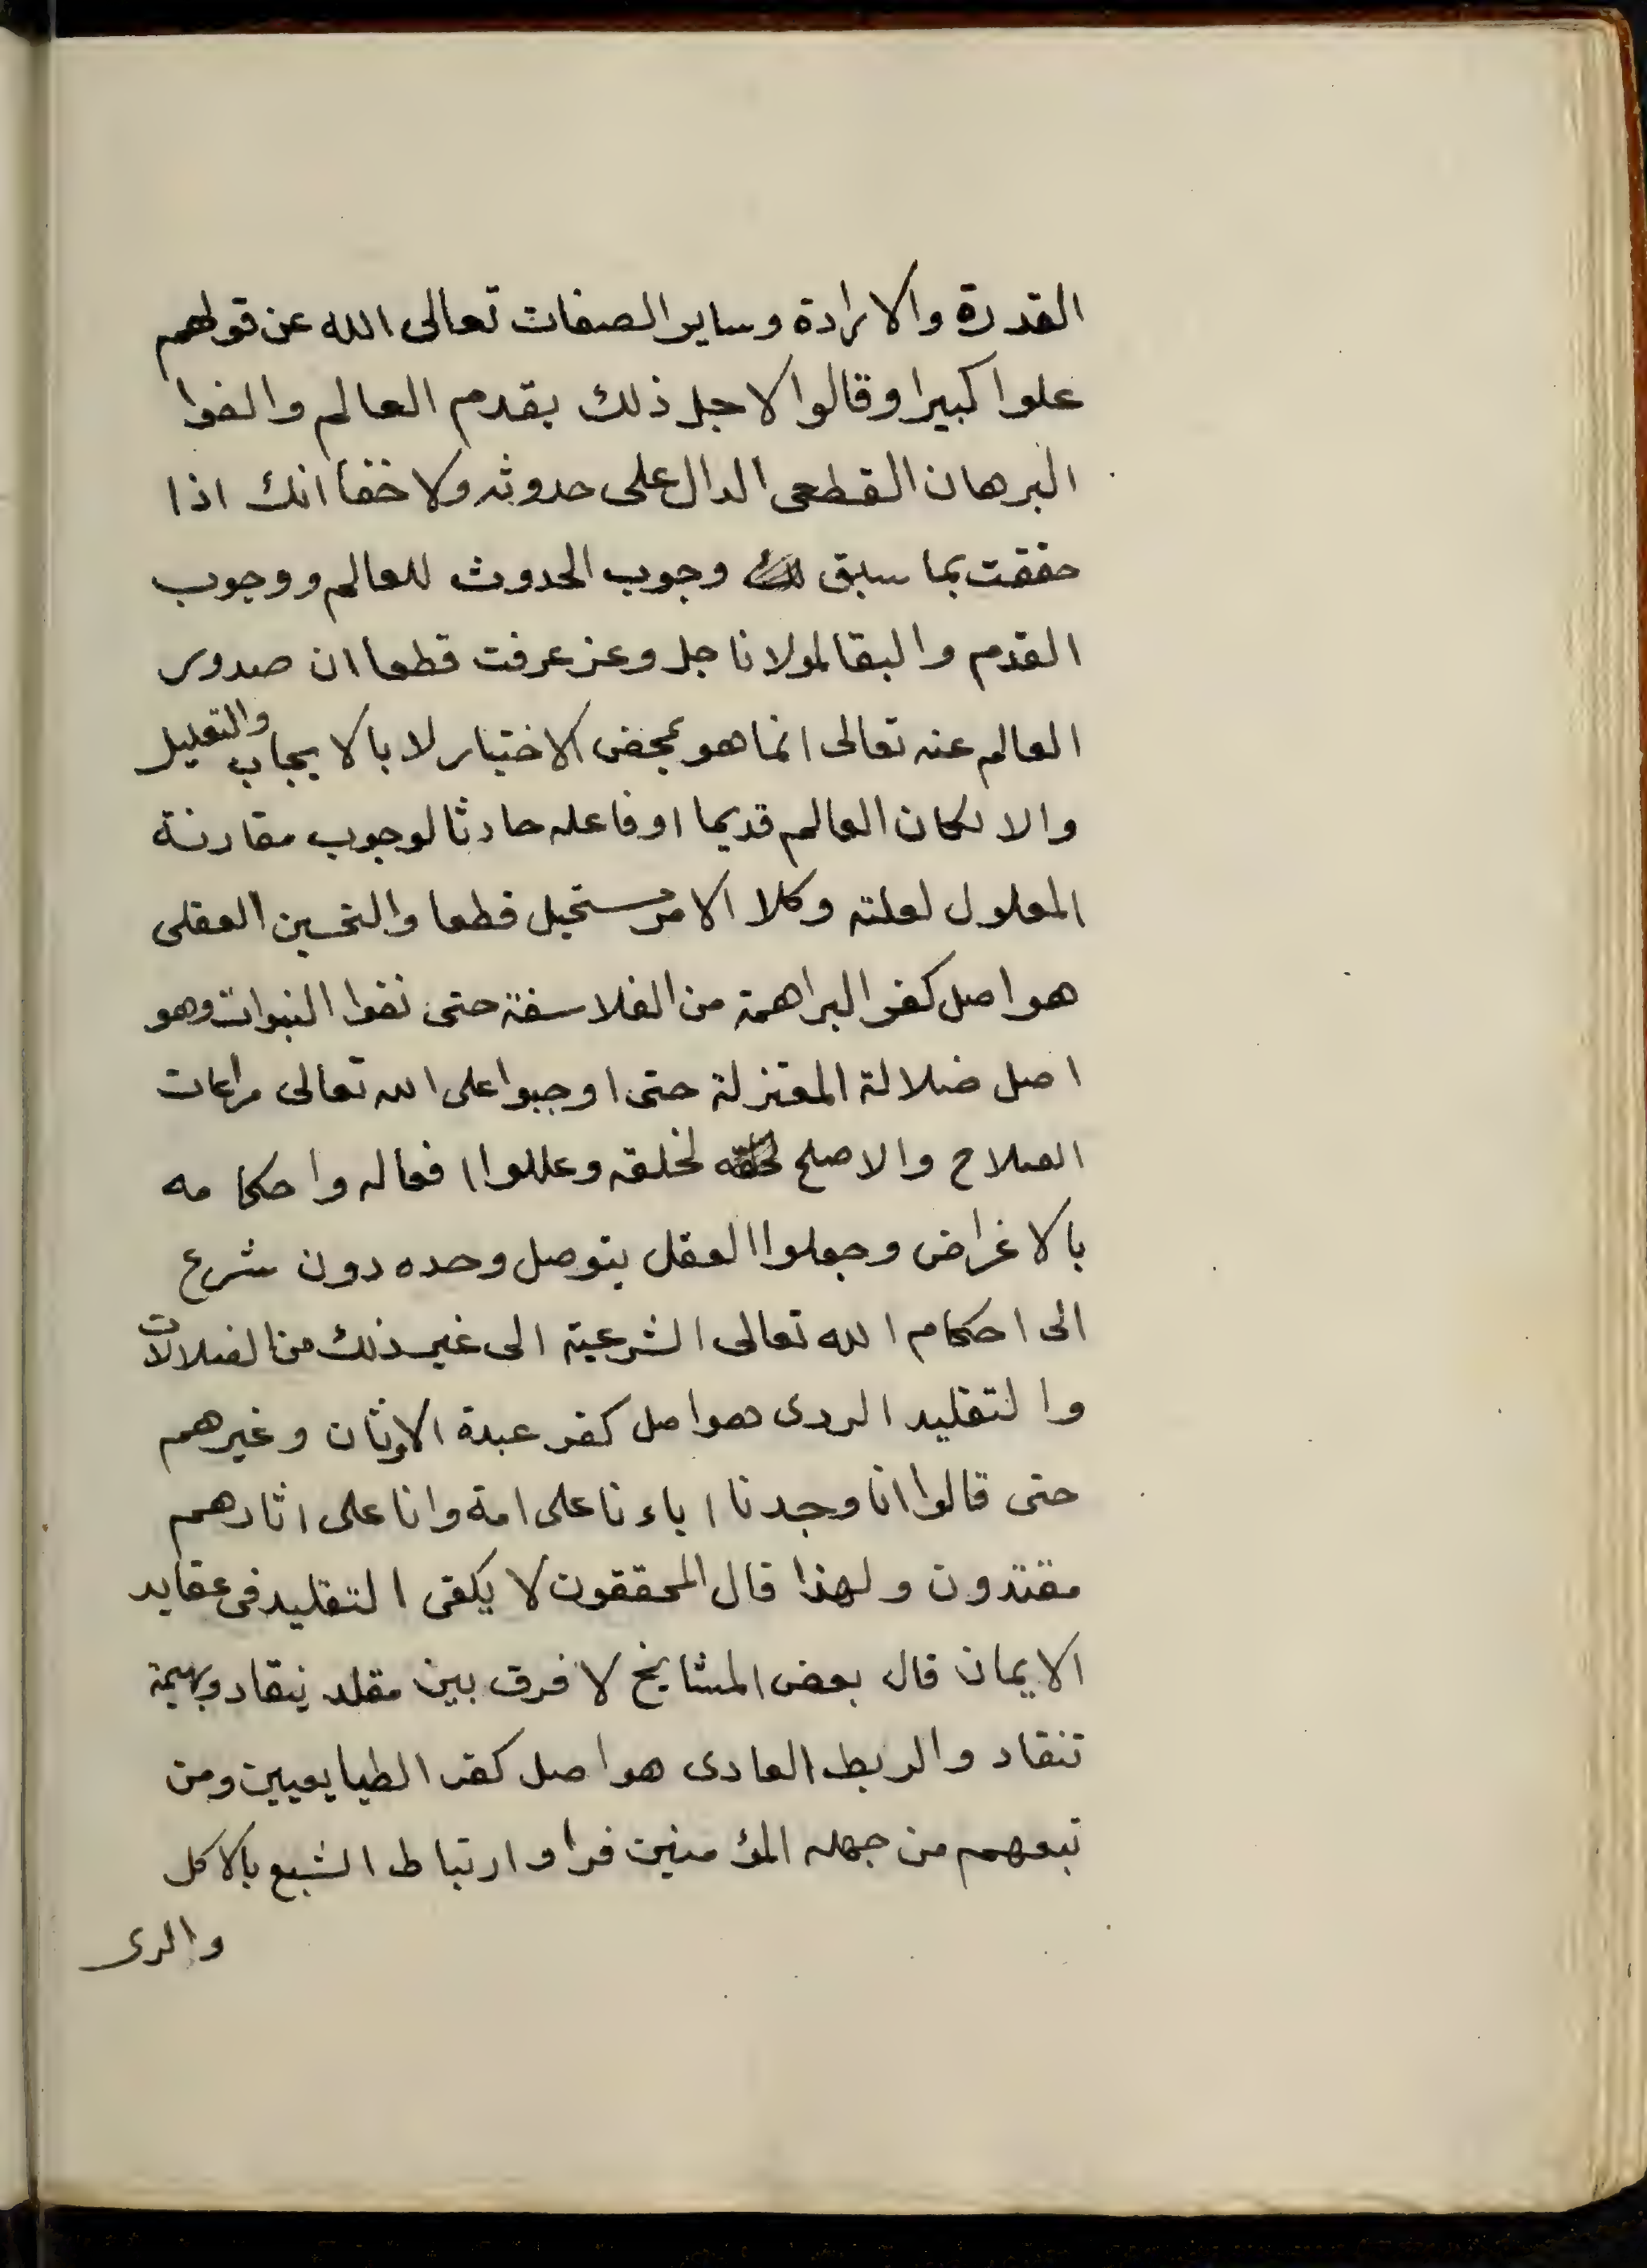 القدرة والارادة وساير الصفات تعالى الله عن قولهم
علوا كبيرا وقالوا لاجل ذلك بقدم العالم والغوا
البرهان القطعى الدال على حدوثه ولا خفا انك اذا
حققت بما سبق وجوب الحدوث للعالم ووجوب
القدم والبقا لمولانا جل وعز عرفت قطعا ان صدور
العالم عنه تعالى انما هو بمحض الاختيار لا بالايجاب والتعليل
والا لكان العالم قديما او فاعله حادثا لوجوب مقارنة
المعلول لعلته وكلا الامر مستحيل قطعا والتحسين العقلى
هو اصل كفر البراهمة من الفلاسفة حتى نفوا النبوات وهو
اصل ضلالة المعتزلة حتى اوجبوا على الله تعالى مراعات
الصلاح والاصلح لخلقه وعللوا افعاله واحكامه
بالاغراض وجعلوا العقل يتوصل وحده دون شرع
الى احكام الله تعالى الشرعية الى غير ذلك من الضلالات
والتقليد الردى هو اصل كفر عبدة الاوثان وغيرهم
حتى قالوا انا وجدنا اباءنا على امة وانا على اثارهم
مقتدون ولهذا قال المحققون لا يكفى التقليد فى عقايد
الايمان قال بعض المشايخ لا فرق بين مقلد ينقاد وبهيمة
تنقاد والربط العادى هو اصل كفر الطبايعيين ومن
تبعهم من جهله المؤمنين فراو ارتباط الشبع بالاكل
والرى